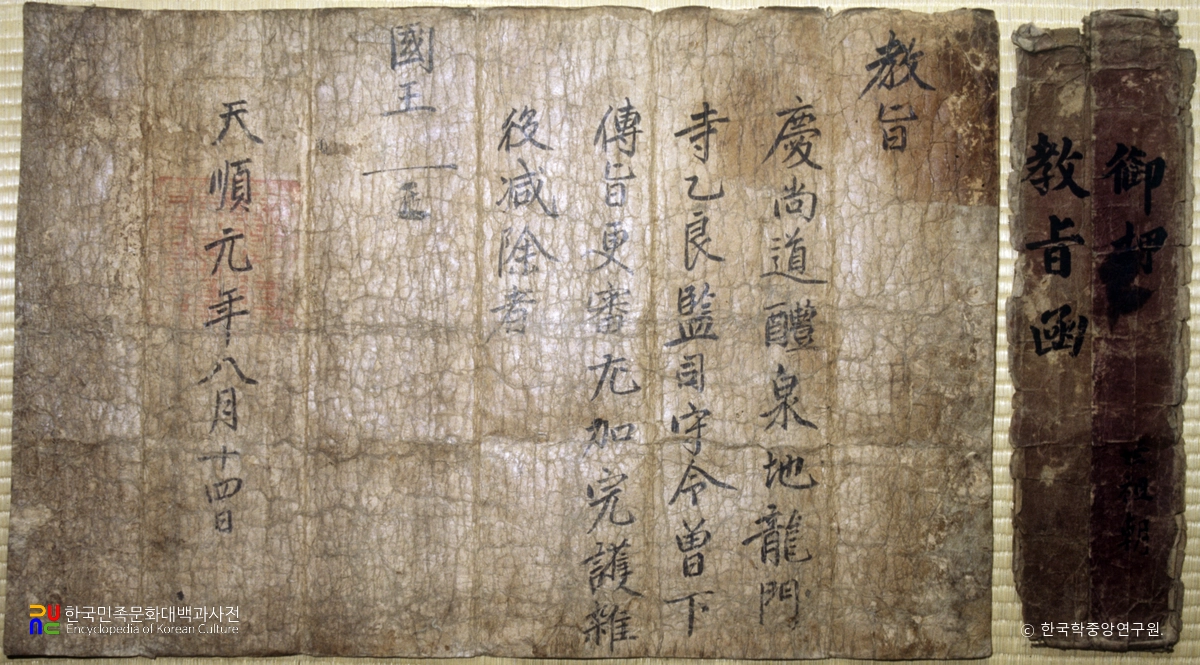 教旨
慶尚道醴泉地龍門
寺乙良監司守令曾下
傳旨更審尤加完護雜
役減除者
國王
天順元年八月十四日
御押
教旨函
한국민족문화대백과사전
Encyclopedia of Korean Culture
© 한국학중앙연구원.